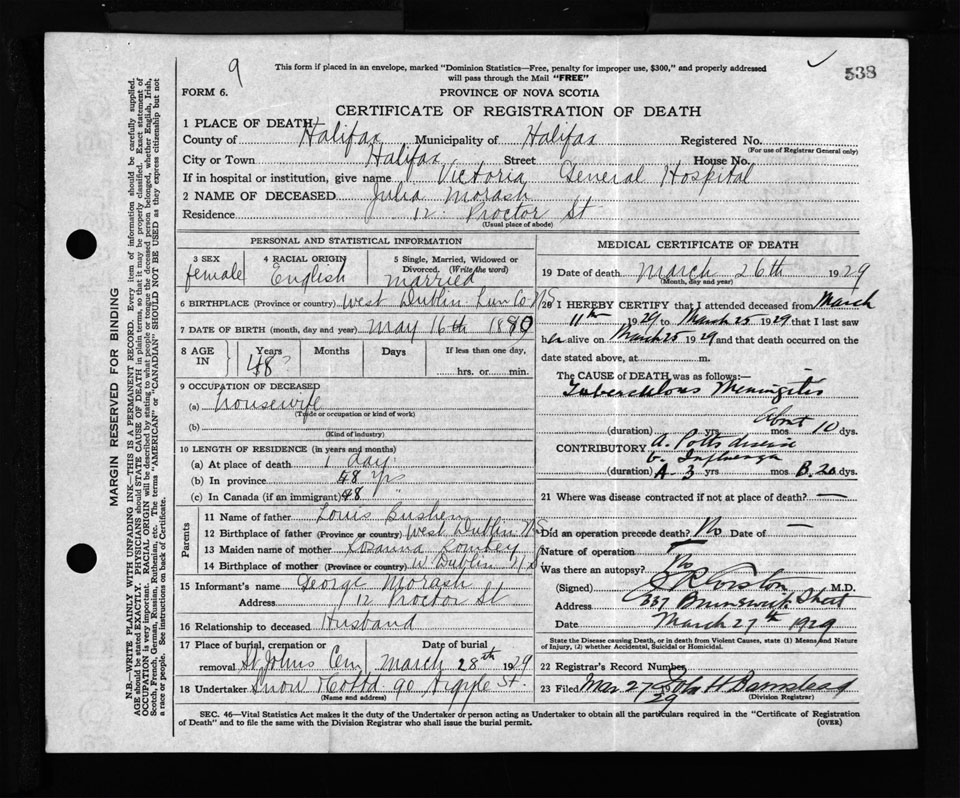 9
This form if placed in an envelope, marked "Dominion Statistics—Free, penalty for improper use, $300," and properly addressed
will pass through the Mail "FREE"
538
FORM 6.
PROVINCE OF NOVA SCOTIA
CERTIFICATE OF REGISTRATION OF DEATH
1 PLACE OF DEATH
County of Halifax Municipality of Halifax Registered No.
(For use of Registrar General only)
City or Town Halifax Street House No.
If in hospital or institution, give name Victoria General Hospital
2 NAME OF DECEASED Julia Morash
Residence 12 Proctor St
(Usual place of abode)
PERSONAL AND STATISTICAL INFORMATION
3 SEX female
4 RACIAL ORIGIN English
5 Single, Married, Widowed or
Divorced. (Write the word)
married
6 BIRTHPLACE (Province or country) West Dublin Lun Co NS
7 DATE OF BIRTH (month, day and year) May 16th 1880
8 AGE IN Years Months Days If less than one day,
48
hrs. or min.
9 OCCUPATION OF DECEASED
(a) Housewife
(Trade or occupation or kind of work)
(b)
(Kind of industry)
10 LENGTH OF RESIDENCE (in years and months)
(a) At place of death 1 day
(b) In province 48 yrs
(c) In Canada (if an immigrant) 48 "
Parents
11 Name of father Louis Bushen
12 Birthplace of father (Province or country) West Dublin NS
13 Maiden name of mother
14 Birthplace of mother (Province or country) W Dublin NS
15 Informant's name George Morash
Address 12 Proctor St
16 Relationship to deceased Husband
17 Place of burial, cremation or Date of burial
removal St Johns Cem March 28th 1929
18 Undertaker Snow & Co Ltd 90 Argyle St.
(Name and address)
MEDICAL CERTIFICATE OF DEATH
19 Date of death March 26th 1929
(Month, day and year)
20 I HEREBY CERTIFY that I attended deceased from March
11th 1929 to March 25 1929 that I last saw
her alive on March 25 1929 and that death occurred on the
date stated above, at m.
The CAUSE of DEATH was as follows:—
Tuberculous Meningitis
(duration) yrs mos About 10 dys.
CONTRIBUTORY a. Potts disease
b. Influenza
(duration) A 3 yrs mos B. 20 dys.
21 Where was disease contracted if not at place of death? —
Did an operation precede death? No Date of —
Nature of operation —
Was there an autopsy? No
(Signed) M.D.
Address Brunswick Street
Date March 27th 1929
State the Disease causing Death, or in death from Violent Causes, state (1) Means and Nature
of Injury, (2) whether Accidental, Suicidal or Homicidal.
22 Registrar's Record Number
23 Filed Mar 27 1929 John H Barnstead
(Division Registrar)
SEC. 46—Vital Statistics Act makes it the duty of the Undertaker or person acting as Undertaker to obtain all the particulars required in the "Certificate of Registration
of Death" and to file the same with the Division Registrar who shall issue the burial permit.
(OVER)
MARGIN RESERVED FOR BINDING
N.B.—WRITE PLAINLY WITH UNFADING INK—THIS IS A PERMANENT RECORD. Every item of information should be carefully supplied.
AGE should be stated EXACTLY. PHYSICIANS should STATE CAUSE OF DEATH in plain terms, so that it may be properly classified. Exact statement of
OCCUPATION is very important. RACIAL ORIGIN will be described by stating to what people or tongue the deceased person belonged, whether English, Irish,
Scotch, French, German, Russian, Ruthenian, etc. The terms "AMERICAN" or "CANADIAN" SHOULD NOT BE USED as they express citizenship but not
a race or people. See instructions on back of Certificate.